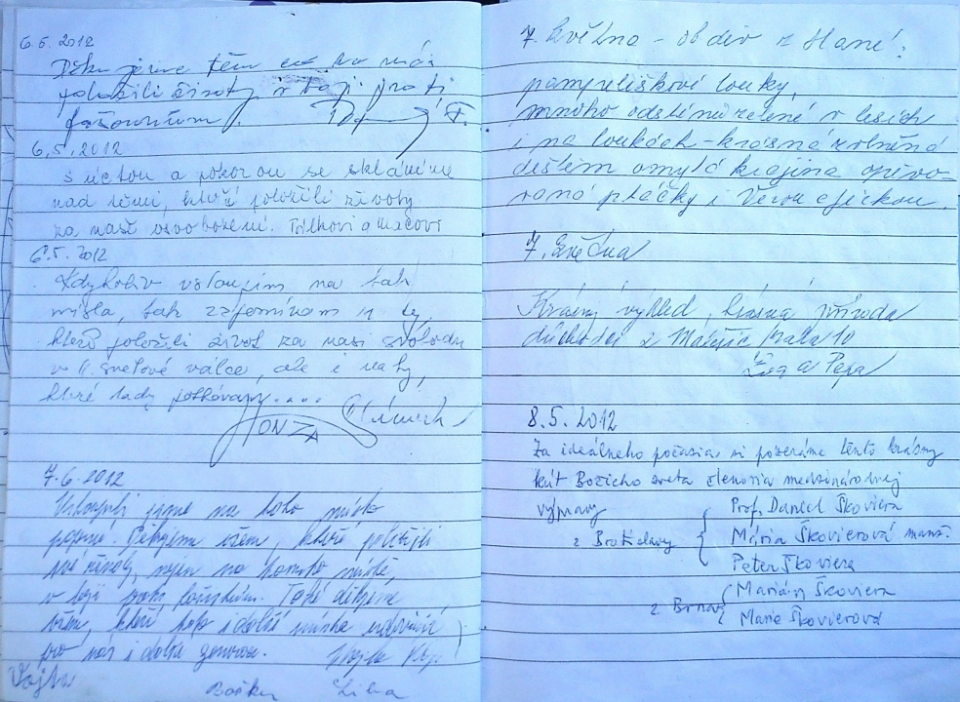 6.5.2012
Děkujeme těm co za nás
položili životy v boji proti
fašounům.
6.5.2012
S úctou a pokorou se skláníme
nad těmi, kteří položili životy
za naše osvobození.
6.5.2012
Kdykoliv vstoupím na tak
místa, tak vzpomínám na ty,
kteří položili život za naši svobodu
v II. světové válce, ale i na ty,
které tady potkávám....
HONZA
7.6.2012
Vstoupili jsme na toto místo
poprvé. Děkujeme všem, kteří položili
své životy, nejen na tomto místě,
v boji proti fašismu. Také děkujeme
všem, kteří toto i další místa udržují
pro nás i další generace.
Vojta
7. května - obdiv z Hané:
pampeliškové louky,
mnoho odstínů zeleně v lesích
i na loukách - krásná zvlněná
deštěm omytá krajina opěvo-
vaná ptáčky i Věrou čjičkou.
7. května
Krásný výhled, krásná příroda
důchodci z Malešic Praha 10
a Pepa
8.5.2012
Za ideálneho počasia si pozeráme tento krásny
kút Božieho sveta členovia medzinárodnej
výpravy
z Bratislavy
Prof. Daniel Škoviera
Mária Škovierová manž.
Peter Škoviera
z Brna
Marián Škoviera
Marie Škovierová